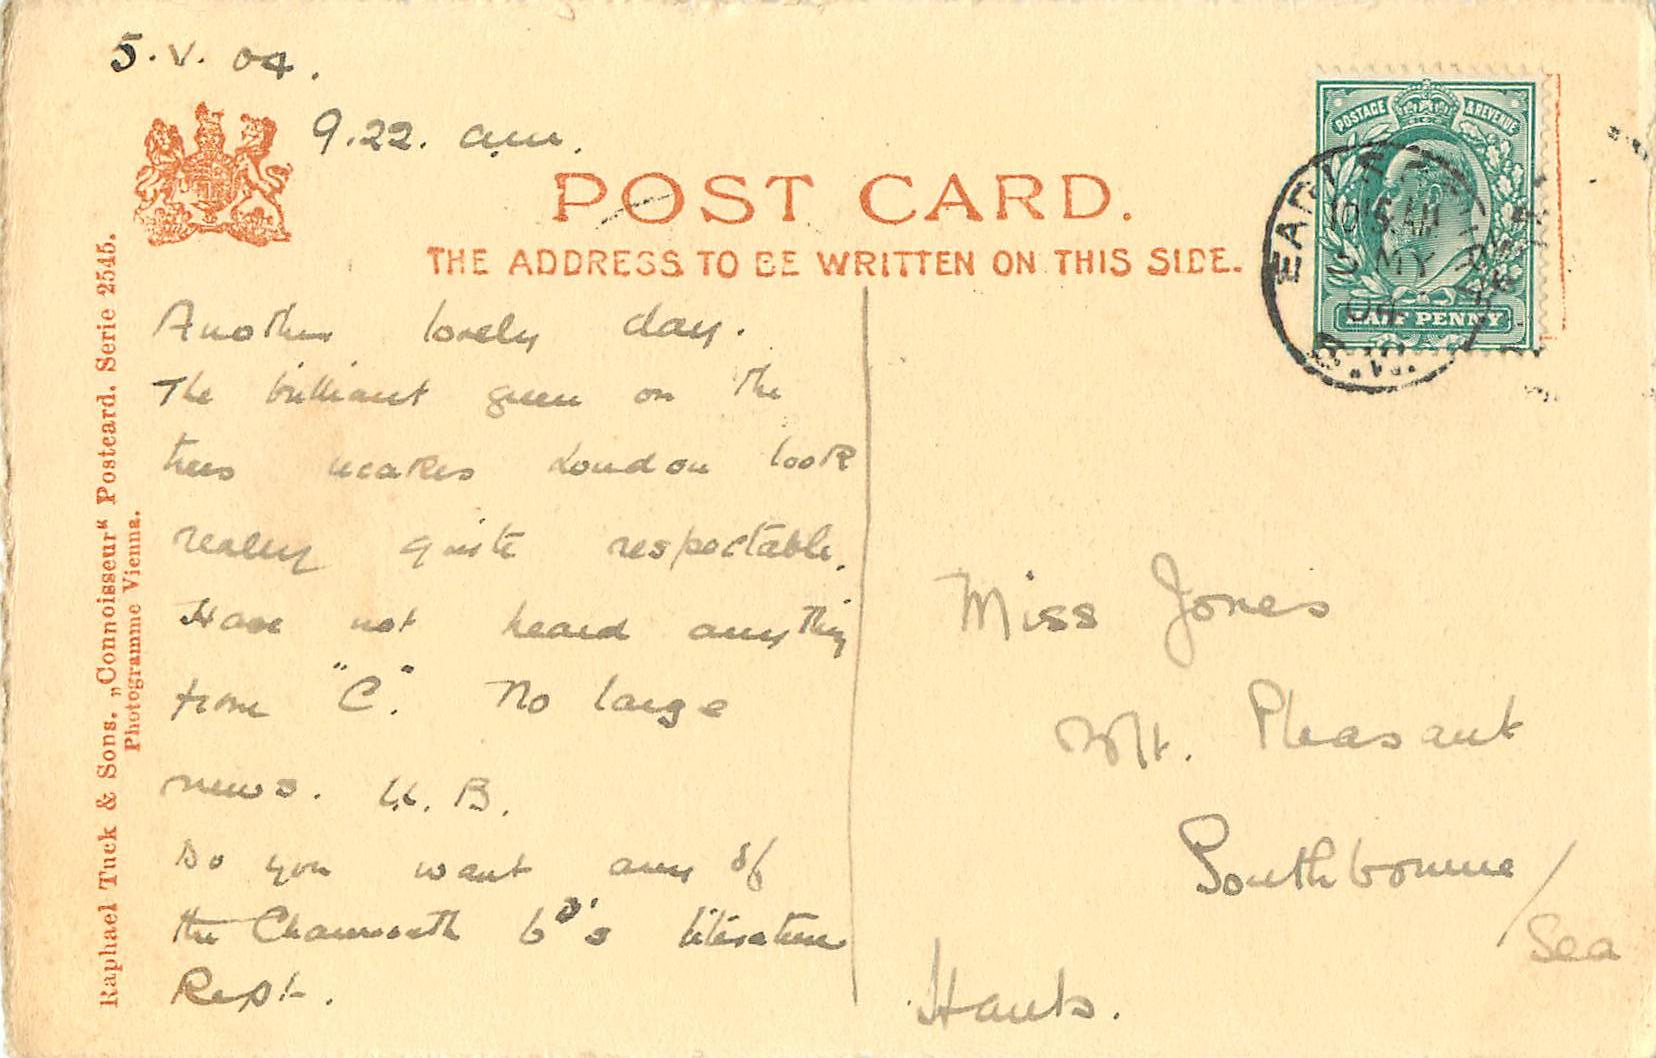 5.V.04.
9.22. a.m.
POST CARD.
THE ADDRESS TO BE WRITTEN ON THIS SIDE.
POSTAGE & REVENUE
HALF PENNY
10 15 AM
MY
04
Another lovely day.
The brilliant green on the
trees makes London look
really quite respectable.
Have not heard anything
from "C". No large
news. B.
Do you want any of
the 6d's literature
Rept.
Miss Jones
Mt. Pleasant
Southbourne /
Sea
Hants.
Raphael Tuck & Sons. „Connoisseur" Postcard. Serie 2545.
Photogramme Vienna.